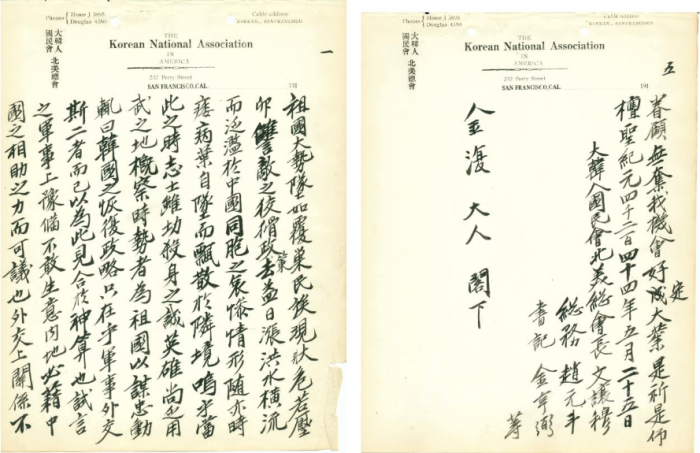 Phones { Home J 3808
Douglas 4380
THE
Korean National Association
IN
AMERICA
Cable address
KOREAN, SANFRANCISCO
大韓人 北美總會
國民會
232 Perry Street
SAN FRANCISCO, CAL.
191
一
祖國大勢墜如覆巢民族現狀危若壓
卵讐敵之狡猾政策去益日漲洪水橫流
而泛濫於中國同胞之哀慘情形隨亦時
痿病葉自墜而飄散於隣境嗚乎當
此之時志士雖切殺身之誠英雄尚乏用
武之地概察時勢者為祖國以謀忠動
輒曰韓國之恢復政略只在乎軍事外交
斯二者而已以為此見合於神算也試言
之軍事上豫備不敢生意內地必藉中
國之相助之力而可議也外交上關係不
Phones { Home J 3808
Douglas 4380
THE
Korean National Association
IN
AMERICA
Cable address
KOREAN, SANFRANCISCO
大韓人 北美總會
國民會
232 Perry Street
SAN FRANCISCO, CAL.
191
五
眷顧無棄我機會好成大業是祈是仰
檀聖紀元四千二百四十四年五月二十五日
大韓人國民會北美總會長 文讓穆
総務 趙元
書記 金亨
等
金 復 大人 閣下